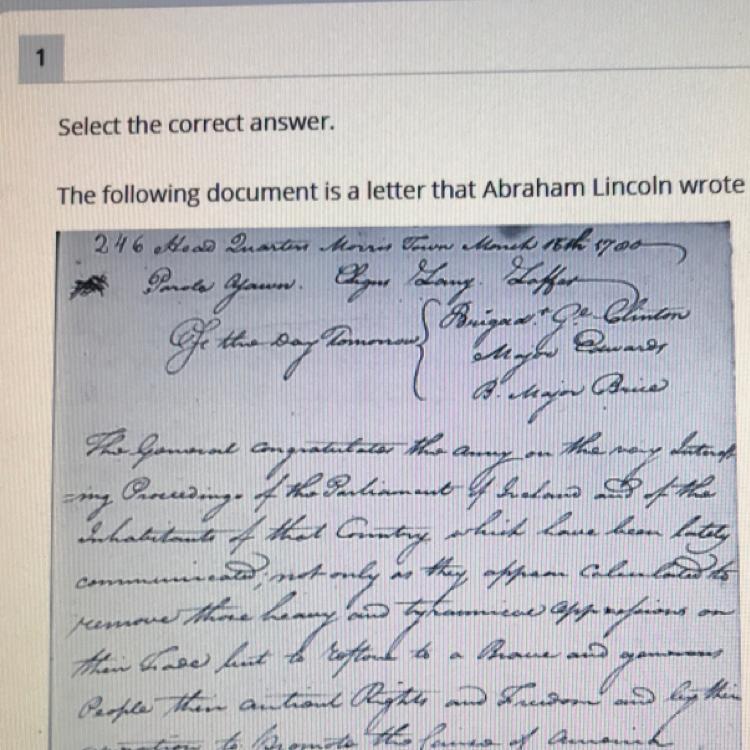 1
Select the correct answer.
The following document is a letter that Abraham Lincoln wrote
246 Head Quarters Morris Town March 16th 1780
Parole Clyns Lary Laffer
Of the Day Tomorrow { Brigad.r Ge. Clinton
Major Edwards
B. Major Brice
The General congratulates the army on the very Interest
=ing Proceedings of the Parliament of Ireland and of the
Inhabitants of that Country which have been lately
communicated; not only as they appear Calculated to
remove those heavy and tyhannical oppressions on
their Trade but to restore to a Brave and generous
People their antient Rights and Freedom and by their
to Promote the Cause of America